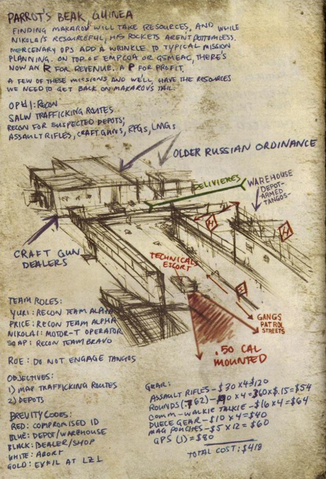 PARROT'S BEAK, GUINEA
FINDING MAKAROV WILL TAKE RESOURCES, AND WHILE
NIKOLAI'S RESOURCEFUL, HIS POCKETS AREN'T BOTTOMLESS.
MERCENARY OPS ADD A WRINKLE TO TYPICAL MISSION
PLANNING. ON TOP OF EMPCOA OR OSMEAC, THERE'S
NOW AN R FOR REVENUE. A P FOR PROFIT.
A FEW OF THESE MISSIONS AND WE'LL HAVE THE RESOURCES
WE NEED TO GET BACK ON MAKAROV'S TAIL.
OP#1: RECON
SALW TRAFFICKING ROUTES
RECON FOR SUSPECTED DEPOTS,
ASSAULT RIFLES, CRAFT GUNS, RPGs, LMGs
OLDER RUSSIAN ORDINANCE
DELIVERIES
WAREHOUSE
-DEPOT-
ARMED
TANGOS-
CRAFT GUN
DEALERS
TECHNICALS
ESCORT
GANGS
PATROL
STREETS
.50 CAL
MOUNTED
TEAM ROLES:
YURI: RECON TEAM ALPHA
PRICE: RECON TEAM ALPHA
NIKOLAI: MOTOR-T OPERATOR
SOAP: RECON TEAM BRAVO
ROE: DO NOT ENGAGE TANGOS
OBJECTIVES:
1) MAP TRAFFICKING ROUTES
2) DEPOTS
BREVITY CODES:
RED: COMPROMISED ID
BLUE: DEPOT/WAREHOUSE
BLACK: DEALER/SHOP
WHITE: ABORT
GOLD: EVAC AT LZ1
GEAR:
ASSAULT RIFLES - $30 x 4 = $120
ROUNDS (7.62) - x $.15 = $54
COMM - WALKIE TALKIE - $16 x 4 = $64
DUECE GEAR - $10 x 4 = $40
MAG POUCHES - $5 x 12 = $60
GPS (1) = $80
TOTAL COST: $418